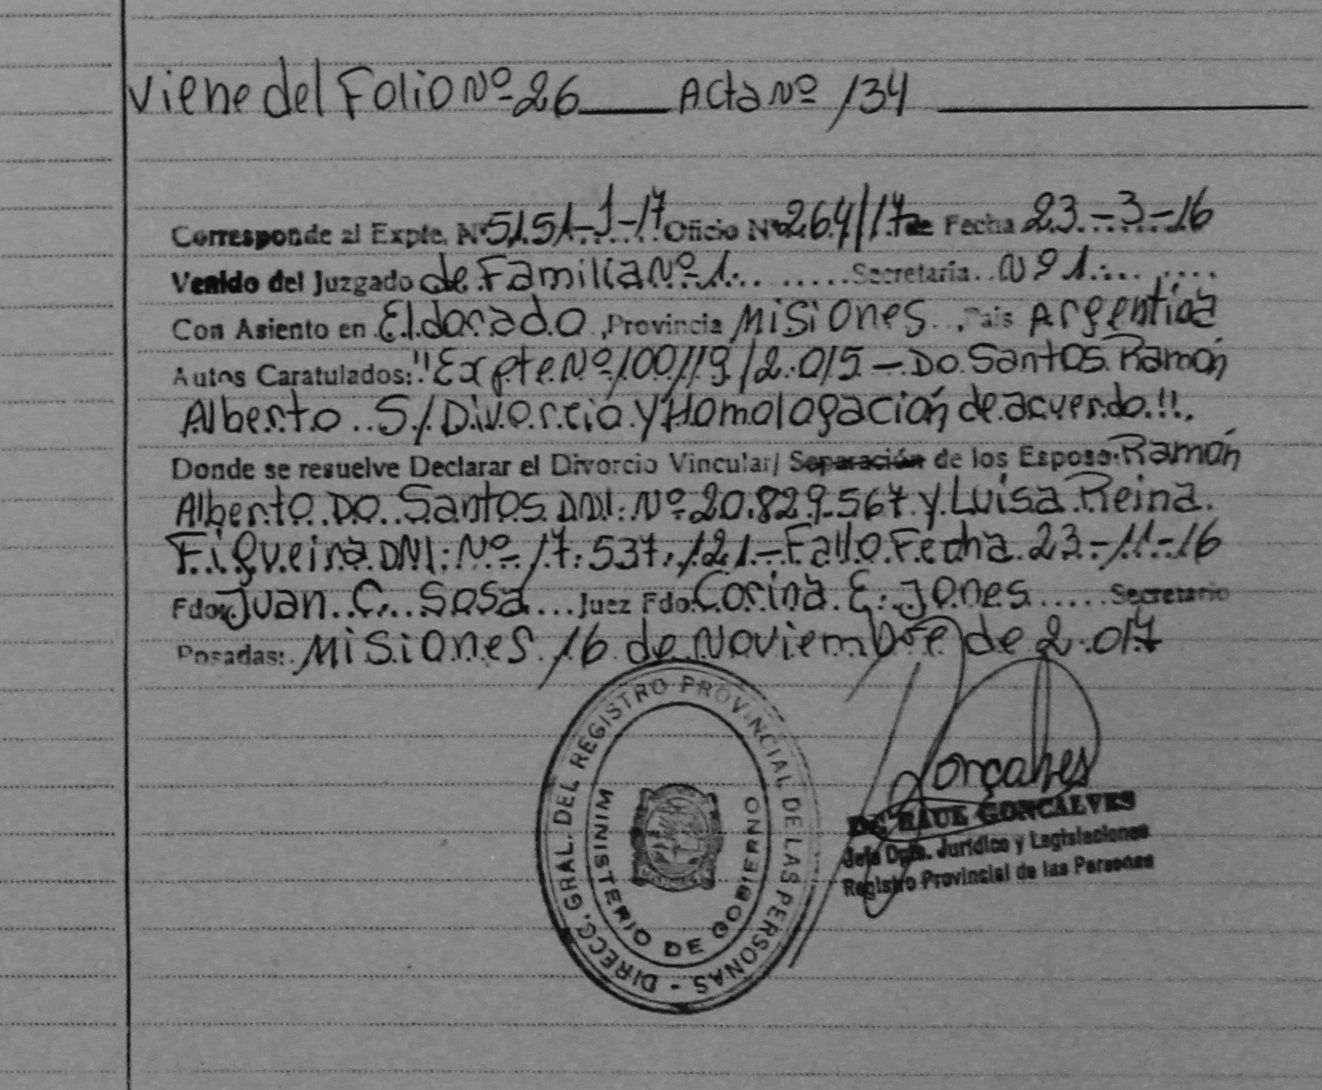 Viene del Folio Nº 26 ____ Acta Nº 134 ____
Corresponde al Expte. Nº 5151-J-17 Oficio Nº 264/17 de Fecha 23-3-16
Venido del Juzgado de Familia Nº 1. ........ Secretaría .. Nº 1. ....
Con Asiento en Eldorado, Provincia Misiones .. País Argentina
Autos Caratulados: "Expte Nº 100119/2.015 - Do Santos Ramón
Alberto .. S/ Divorcio y Homologación de acuerdo.".
Donde se resuelve Declarar el Divorcio Vincular/ Separación de los Esposo. Ramón
Alberto Do Santos DNI: Nº 20.829.567 y Luisa Reina
Figueira DNI: Nº 17.537.121.- Fallo Fecha 23-11-16
Fdo: Juan C. Sosa ... Juez Fdo. Corina E. Jones ..... Secretario
Posadas: Misiones 16 de Noviembre de 2.017
DIRECC. GRAL. DEL REGISTRO PROVINCIAL DE LAS PERSONAS -
MINISTERIO DE GOBIERNO
Gonçalves
RAUL GONCALVES
Jefe Dpto. Jurídico y Legislaciones
Registro Provincial de las Personas